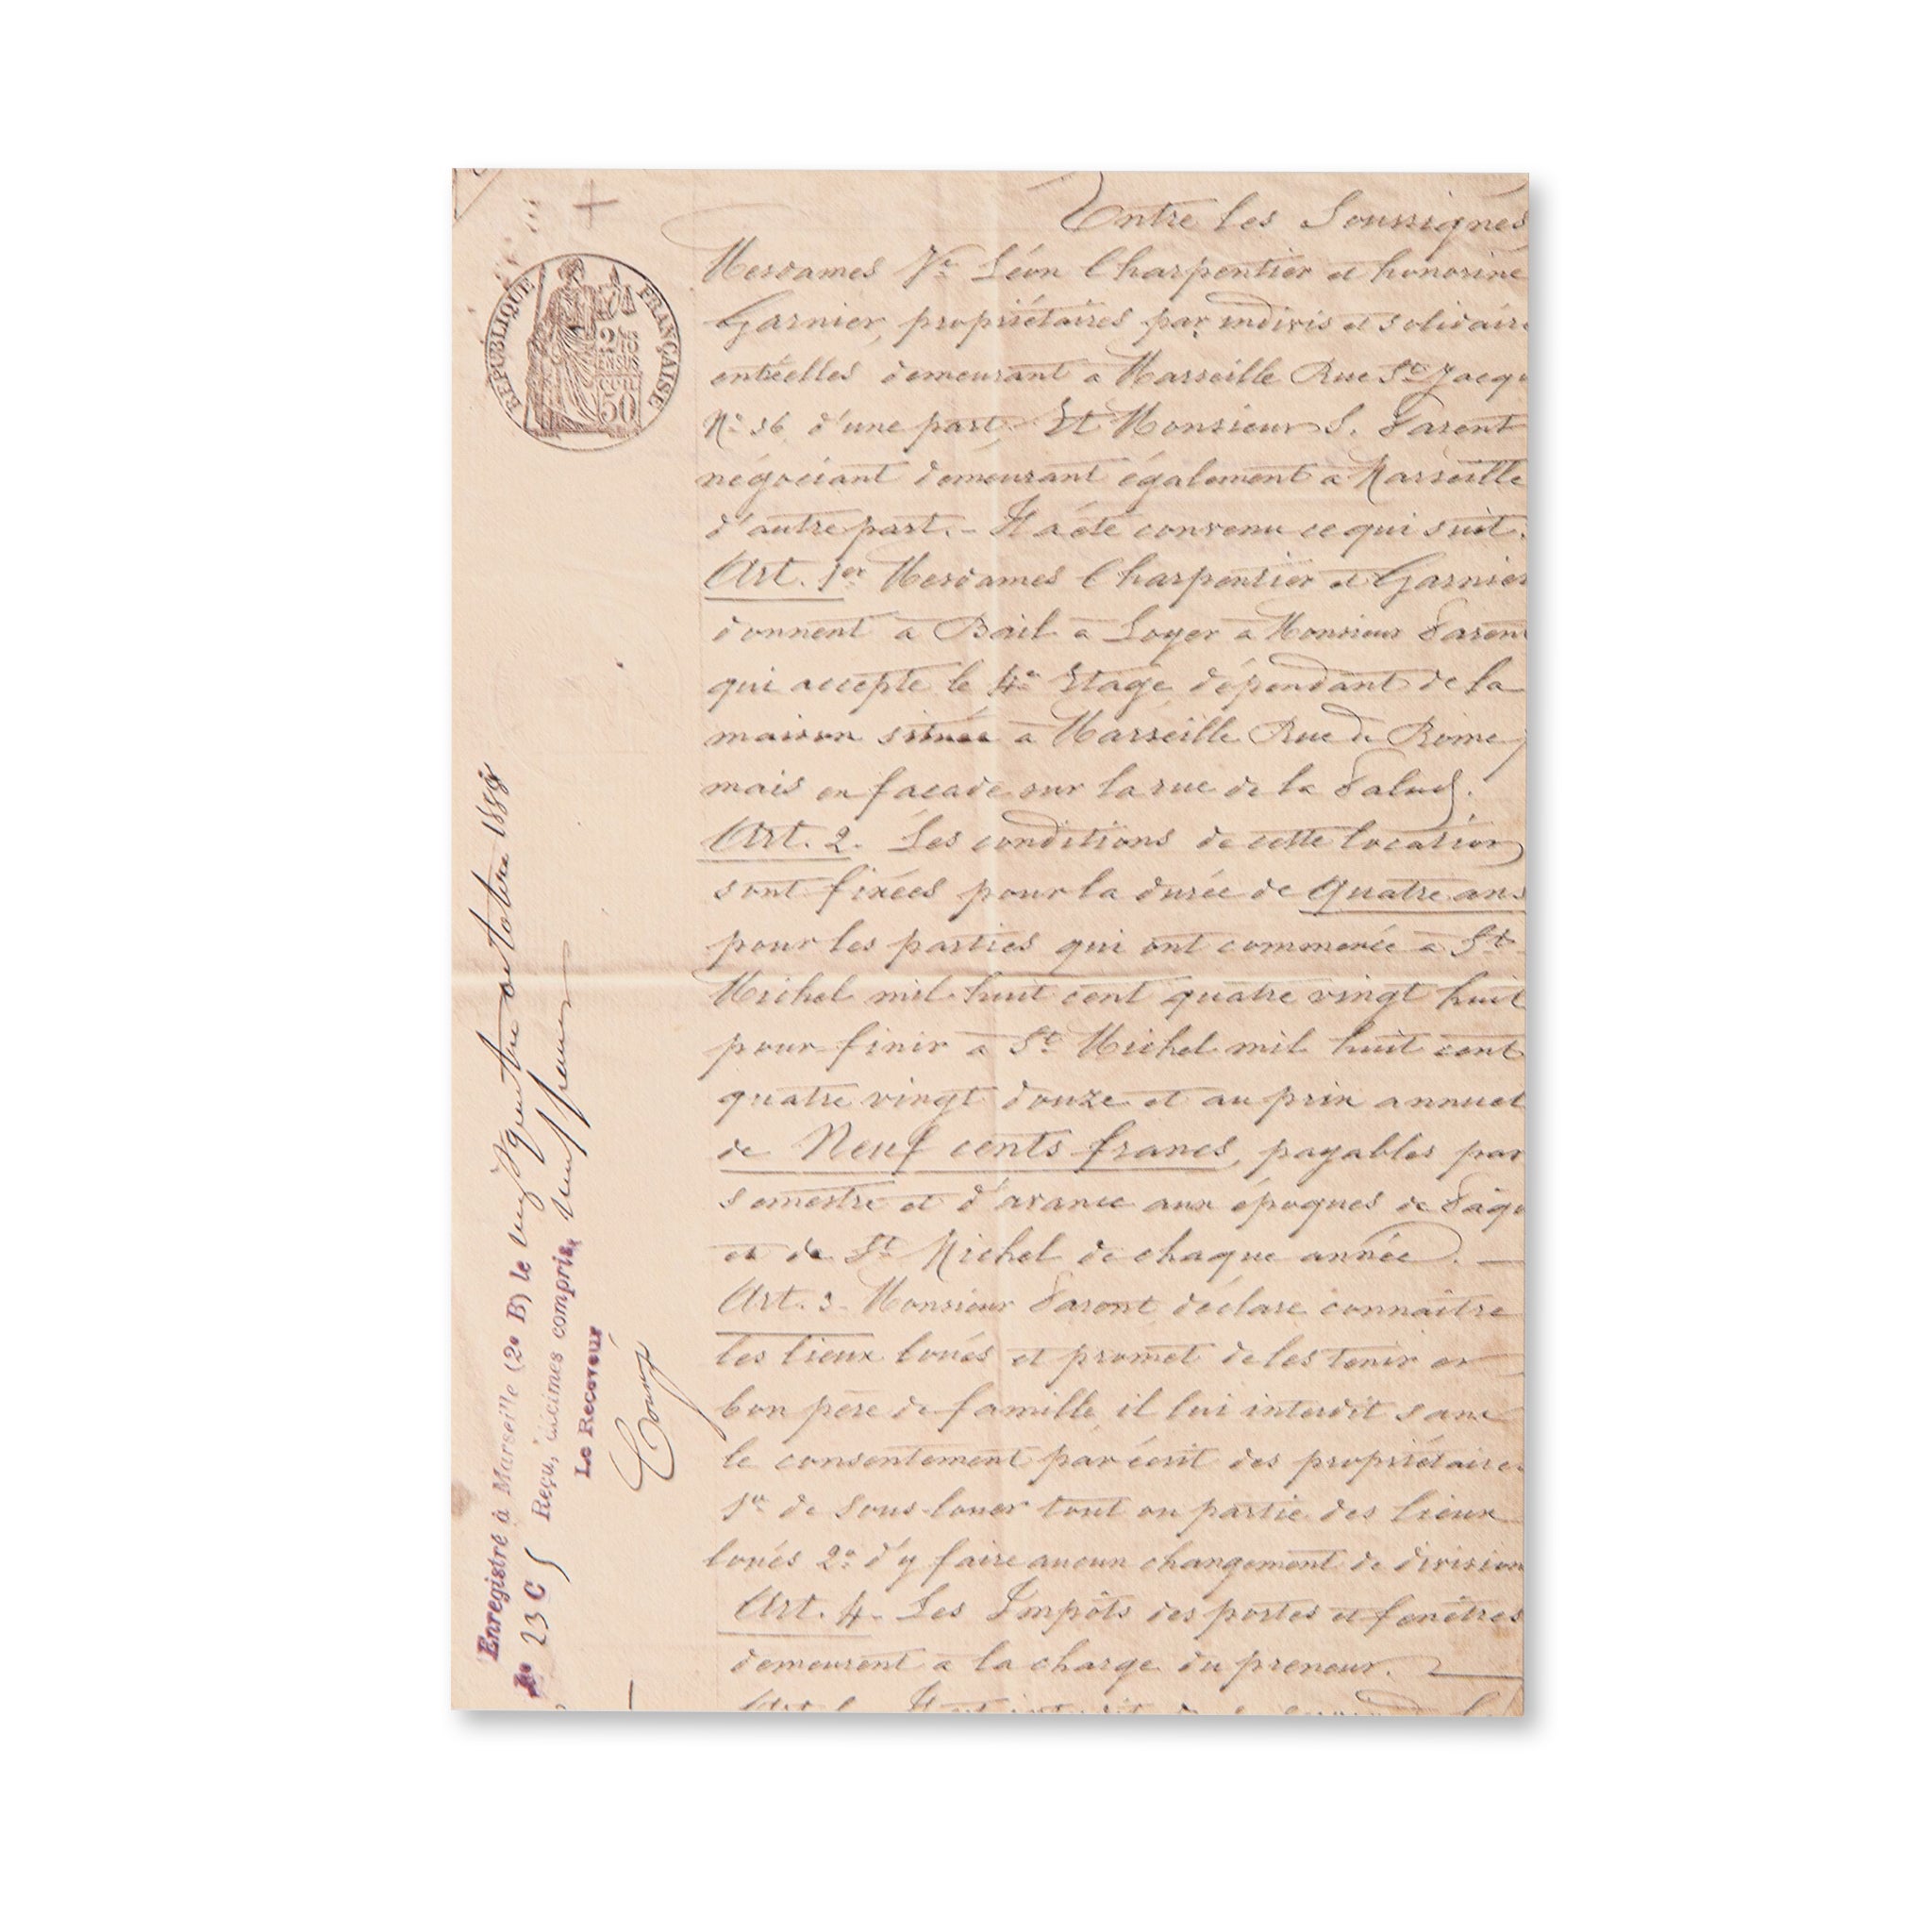 Entre les Soussignés
Mesdames Vve Léon Charpentier et honorine
Garnier, propriétaires par indivis et solidaire
entre elles demeurant a Marseille Rue St Jacqu
No 36 d'une part, Et Monsieur S. Parent
négociant demeurant également a Marseille
d'autre part. - Il a été convenu ce qui suit.
Art. 1er Mesdames Charpentier et Garnier
donnent a Bail a Loyer a Monsieur Parent
qui accepte le 4e Etage dépendant de la
maison située a Marseille Rue de Rome,
mais en facade sur la rue de la Palud.
Art. 2. Les conditions de cette location
sont fixées pour la durée de quatre ans
pour les parties qui ont commencé a St
Michel mil huit cent quatre vingt huit
pour finir a St Michel mil huit cent
quatre vingt douze et au prix annuel
de Neuf cents francs, payables par
semestre et d'avance aux époques de Pâqu
et de St Michel de chaque année. —
Art. 3. Monsieur Parent déclare connaître
les lieux loués et promet de les tenir en
bon père de famille, il lui interdit sans
le consentement par écrit des propriétaires
1o de sous-louer tout ou partie des lieux
loués 2o d'y faire aucun changement de division
Art. 4. Les Impôts des portes et fenêtres
demeurent a la charge du preneur. —
RÉPUBLIQUE FRANÇAISE
2 FRS
50
Enregistré à Marseille (2e B) le vingt quatre octobre 1888
23 C
Reçu, décimes compris, neuf francs
Le Receveur